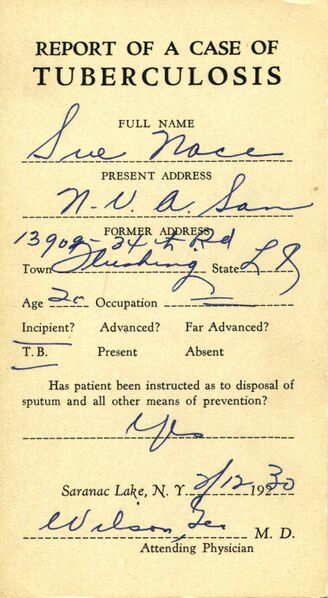 REPORT OF A CASE OF
TUBERCULOSIS
FULL NAME
Sue Nace
PRESENT ADDRESS
N.V.A. San
FORMER ADDRESS
13902-34th Rd
Town Flushing State L I
Age 20 Occupation
Incipient? Advanced? Far Advanced?
T.B. Present Absent
Has patient been instructed as to disposal of
sputum and all other means of prevention?
Yes
Saranac Lake, N. Y. 2/12 1930
Wilson, M. D.
Attending Physician